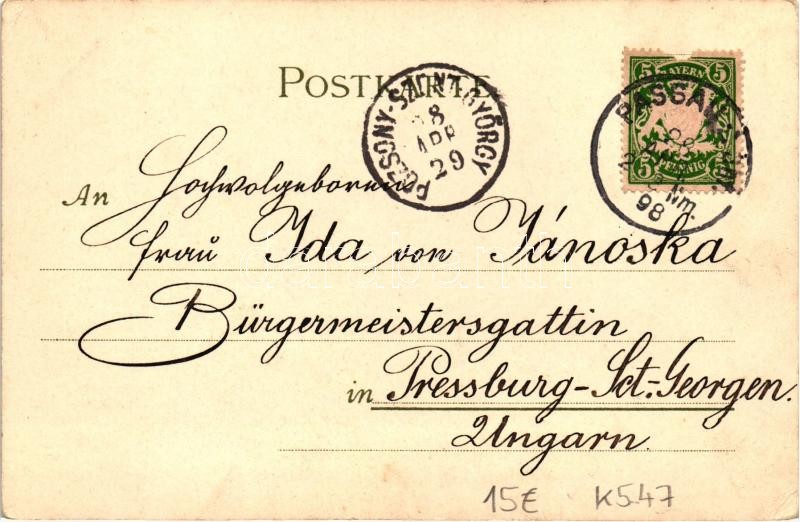 POSTKARTE
POZSONY-SZT-GYÖRGY
98
APR
29
5 BAYERN 5
5 PFENNIG 5
PASSAU
Nm.
98
An Hochwolgeboren
Frau Ida von Jánoska
Bürgermeistersgattin
in Pressburg-Sct.-Georgen.
Ungarn.
15€ K547